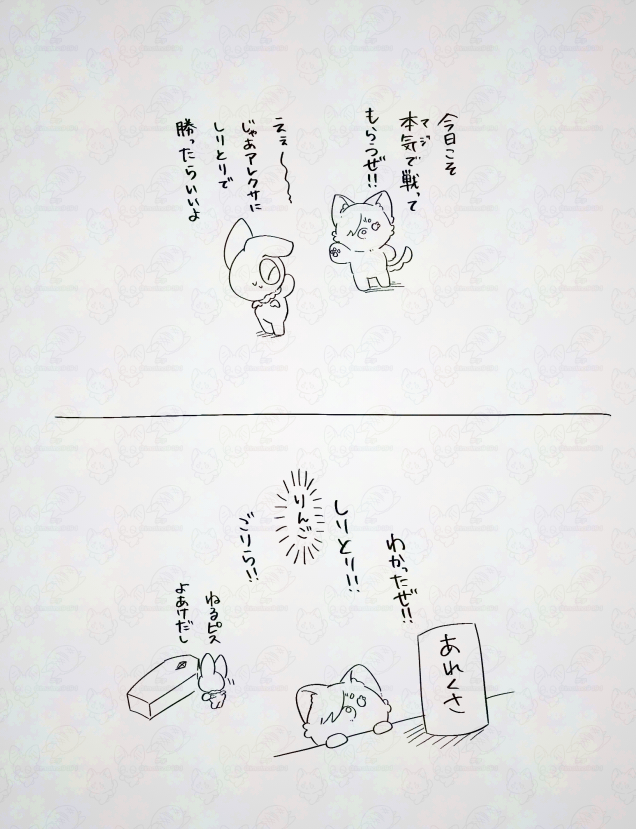 今日こそ
本気で戦って
マジ
もらうぜ!!
えぇ〜〜〜
じゃあアレクサに
しりとりで
勝ったらいいよ
わかったぜ!!
しりとり!!
りんご
ごりら!!
あれくさ
ねるピス
よあけだし